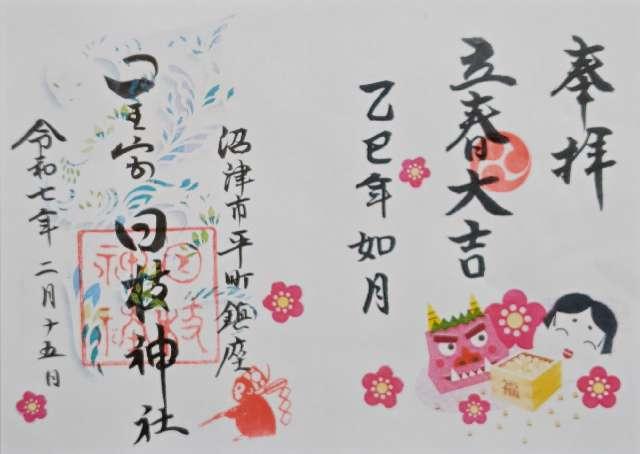 奉拝
立春大吉
乙巳年如月
福
沼津市平町鎮座
日枝神社
日枝神社
令和七年二月十五日